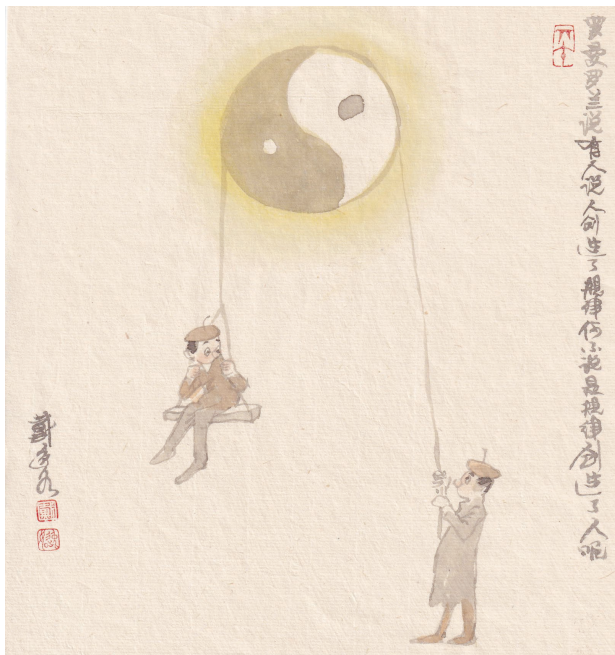 罗曼罗兰说有人说人创造了规律何不说是规律创造了人呢